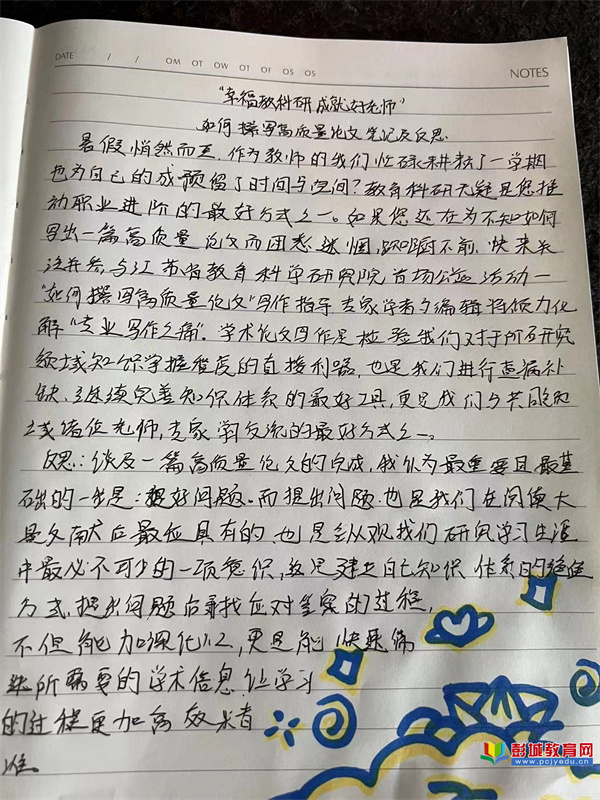 DATE / / OM OT OW OT OF OS OS
NOTES
"幸福教科研 成就好老师"
如何撰写高质量论文笔记及反思
暑假悄然而至,作为教师的我们忙碌耕耘了一学期
也为自己的成预留了时间与空间?教育科研无疑是您推
动职业进阶的最好方式之一。如果您还在为不知如何
写出一篇高质量论文而困惑迷惘,踟蹰不前,快来关
注并参与江苏省教育科学研究院首场公益活动—
"如何撰写高质量论文"写作指导专家学者编辑将倾力化
解"专业写作之痛"。学术论文写作是检验我们对于所研究
领域知识掌握程度的直接利器,也是我们进行查漏补
缺、继续完善知识体系的最好工具,更是我们与其他
诸位老师,专家学交流的最好方式之一。
反思:谈及一篇高质量论文的完成,我认为最重要且最基
础的一步是:想好问题。而提出问题也是我们在阅读大
量文献后最应具有的也是纵观我们研究学习生涯
中最必不可少的一项意识,这是建立自己知识体系的绝佳
方式,提出问题后寻找应对答案的过程,
不但能加深化记,更是能快速筛
选所需要的学术信息让学习
的过程更加高效有
准。
彭城教育网
www.pcjyedu.cn